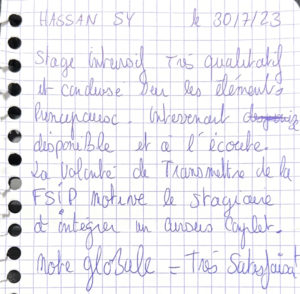 HASSAN SY le 30/7/23
Stage intensif Très qualitatif
et condensé sur les éléments
principaux. Intervenant
disponible et à l'écoute.
La Volonté de Transmettre de la
FSIP motive le stagiaire
d'intégrer un cursus complet.
Note globale = Très Satisfaisant